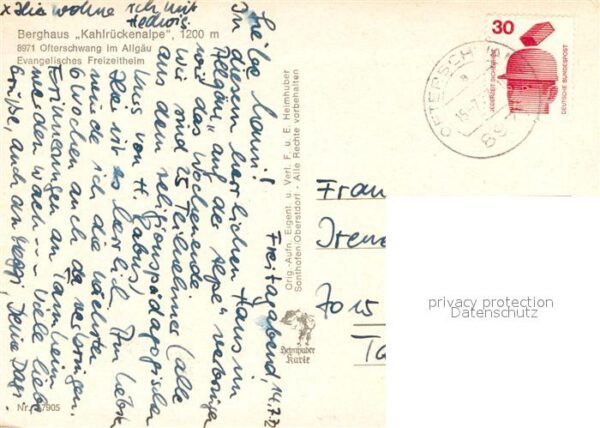 x Hie wohne ich mit
Hedwig.
Berghaus „Kahlrückenalpe“, 1200 m
8971 Ofterschwang im Allgäu
Evangelisches Freizeitheim
Freitagabend, 14.7.72
Liebe
In diesem herrlichen Haus im
Allgäu, auf der Alpe verbringen
wir das Wochenende.
Wir sind 25 Teilnehmer (alle
aus dem religionspädagogischen
Kurs von H. Gabus)
Hier ist es herrlich. Am liebsten
würde ich die nächsten
6 Wochen auch da verbringen.
Erinnerungen an Tannheim
werden wach. Viele liebe
Grüße, auch an Peggi, Deine Dagi.
Nr. 47905
Orig.-Aufn. Eigent u. Verl. F. u. E. Heimhuber
Sonthofen/Oberstdorf - Alle Rechte vorbehalten
Heimhuber
Karte
30
JEDERZEIT SICHERHEIT
DEUTSCHE BUNDESPOST
OFTERSCHWANG
15.-7.7
897
Frau
Irene
7015
privacy protection
Datenschutz